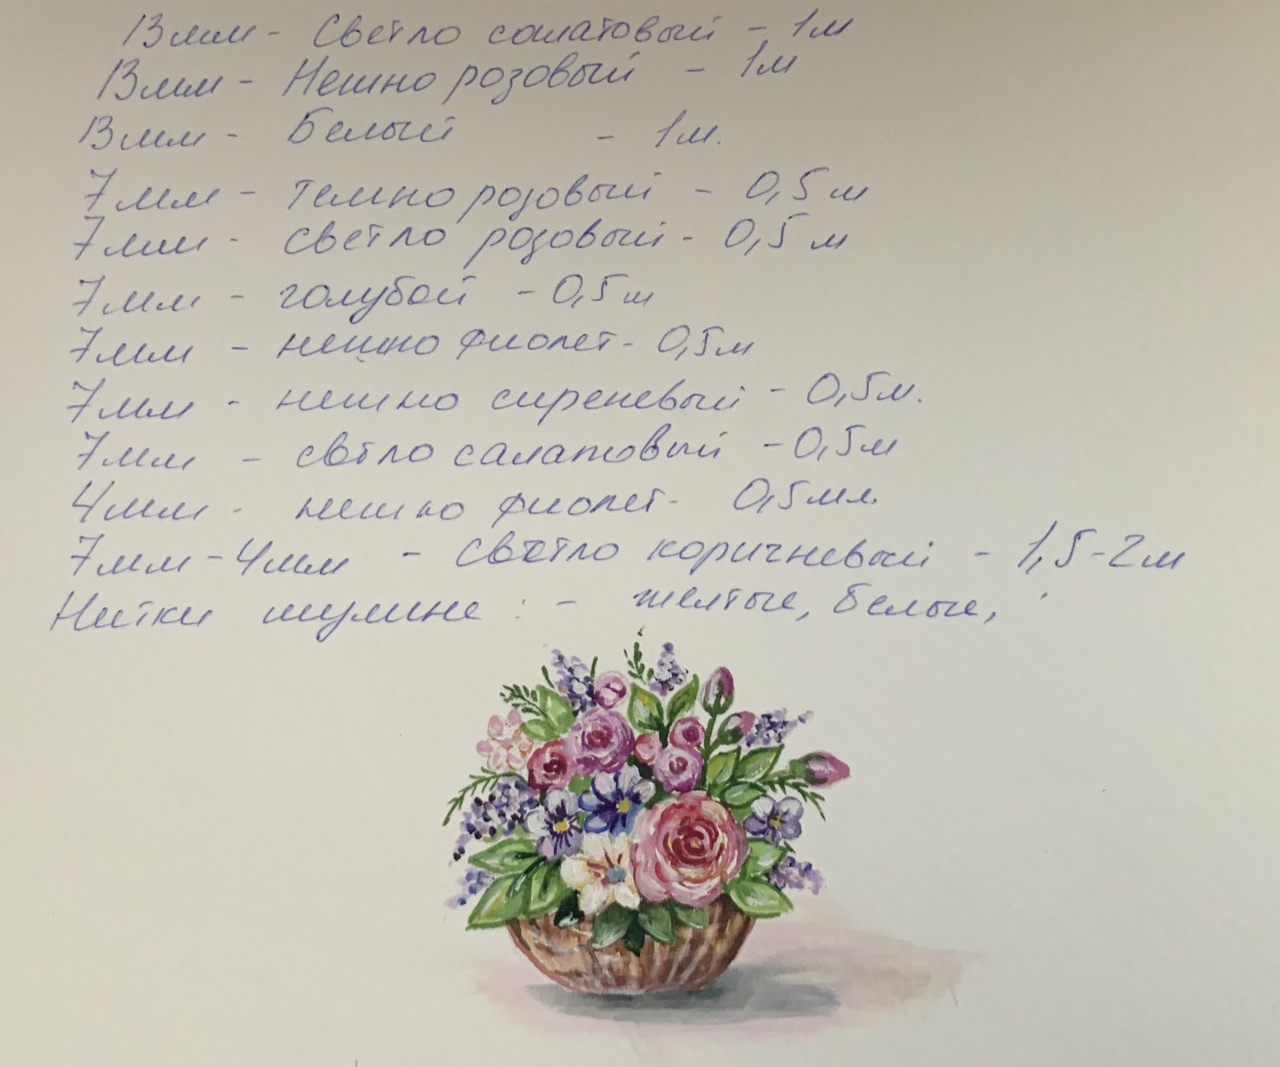 13мм - Светло салатовый - 1м
13мм - Нежно розовый - 1м
13мм - Белый - 1м.
7мм - темно розовый - 0,5м
7мм - светло розовый - 0,5м
7мм - голубой - 0,5м
7мм - нежно фиолет - 0,5м
7мм - нежно сиреневый - 0,5м.
7мм - светло салатовый - 0,5м
4мм - нежно фиолет - 0,5мл.
7мм-4мм - светло коричневый - 1,5-2м
Нитки мулине: - желтые, белые,